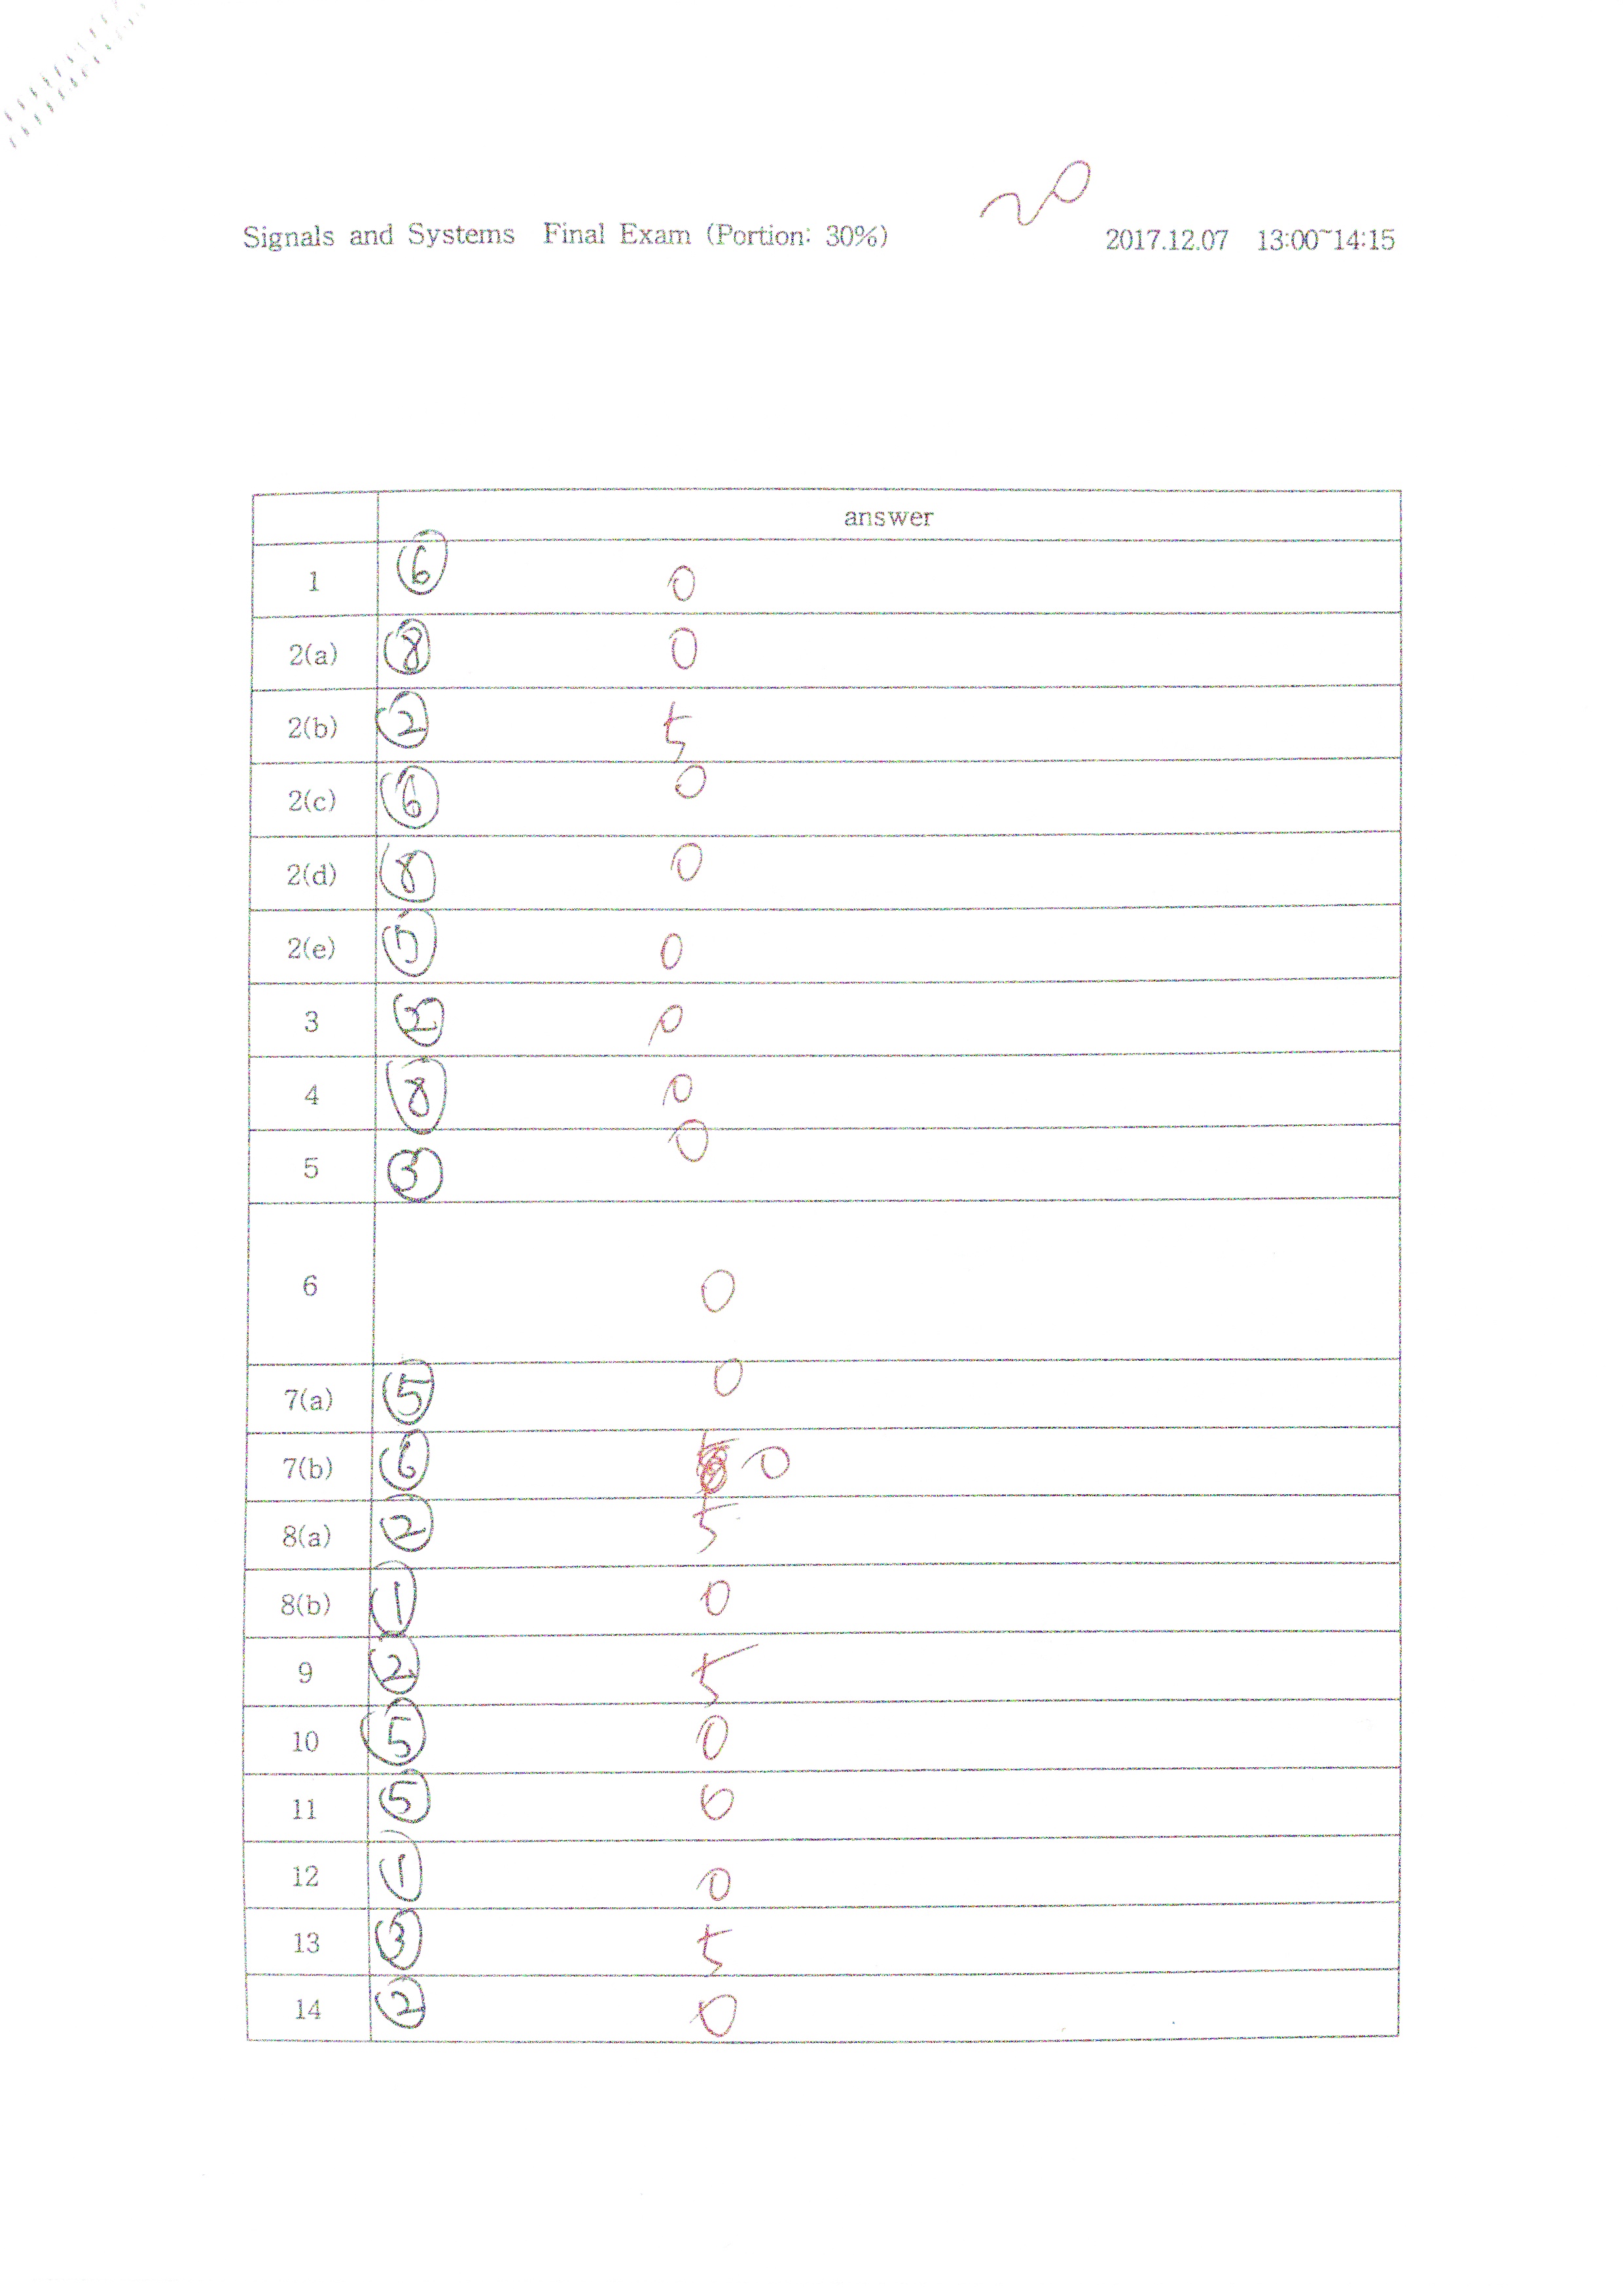 20
Signals and Systems Final Exam (Portion: 30%) 2017.12.07 13:00~14:15
answer
1 ⑥ 0
2(a) ⑧ 0
2(b) ② 5
2(c) ⑥ 0
2(d) ⑧ 0
2(e) ⑤ 0
3 0
4 ⑧ 0
5 ③ 0
6 0
7(a) ⑤ 0
7(b) ⑥ 0
8(a) ② 5
8(b) ① 0
9 ② 5
10 ⑤ 0
11 ⑤ 0
12 ① 0
13 ③ 5
14 ② 0